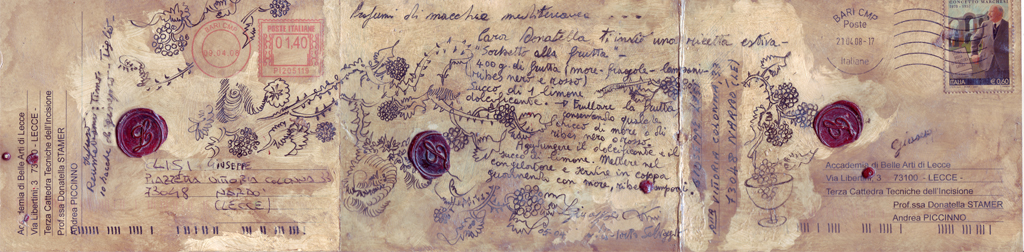 Accademia di Belle Arti di Lecce
Via Libertini, 3 73100 - LECCE -
Terza Cattedra Tecniche dell'Incisione
Prof.ssa Donatella STAMER
Andrea PICCINNO
BARI CMP
POSTE ITALIANE
€ 01.40
LISI GIUSEPPE
PIAZZETTA VITTORIA COLONNA 33
73048 NARDÒ
(LECCE)
Profumi di macchie mediterranee ....
Cara Donatella ti invio una ricetta estiva
"Sorbetto alla frutta"
400 g di frutta (more-fragole-lamponi-
ribes nero e rosso)
Succo di 1 limone
dolcificante. Frullare la frutta
conservando qualche
chicco di more o di
ribes nero o rosso
Aggiungere il dolcificante e il
succo di limone. Mettere nel
congelatore e servire in coppa
guarnendo con more, ribes, lamponi.
VITTORIA COLONNA, 33
73048 NARDÒ (LE)
BARI CMP
Poste
23.04.08-17
Italiane
CONCETTO MARCHESI
ITALIA € 0,60
Accademia di Belle Arti di Lecce
Via Libertini, 3 73100 - LECCE -
Terza Cattedra Tecniche dell'Incisione
Prof.ssa Donatella STAMER
Andrea PICCINNO